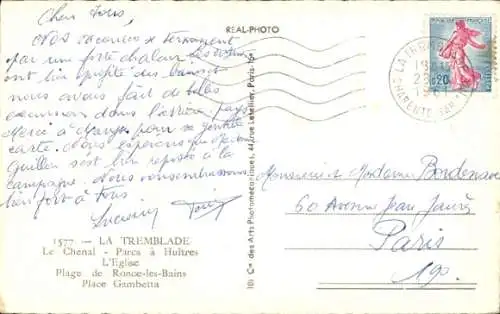 Chers tous,
Nos vacances se terminent
par une forte chaleur. Les enfants
ont bien profité des bains et
nous avons fait de belles
excursions dans l'arrière pays
Merci à pour sa gentille
carte. Nous espérons que
Guillou s'est bien reposée à la
campagne. Nous vous embrassons
bien fort à tous
1577 — LA TREMBLADE
Le Chenal - Parcs à Huîtres
L'Eglise
Plage de Ronce-les-Bains
Place Gambetta
REAL-PHOTO
101 Cie des Arts Photomécaniques, 44, rue Letellier, Paris-15e
LA TREMBLADE
0,20
CHARENTE MAR.
Monsieur et Madame Bordenave
60 Avenue Jean Jaurès
Paris
19e.